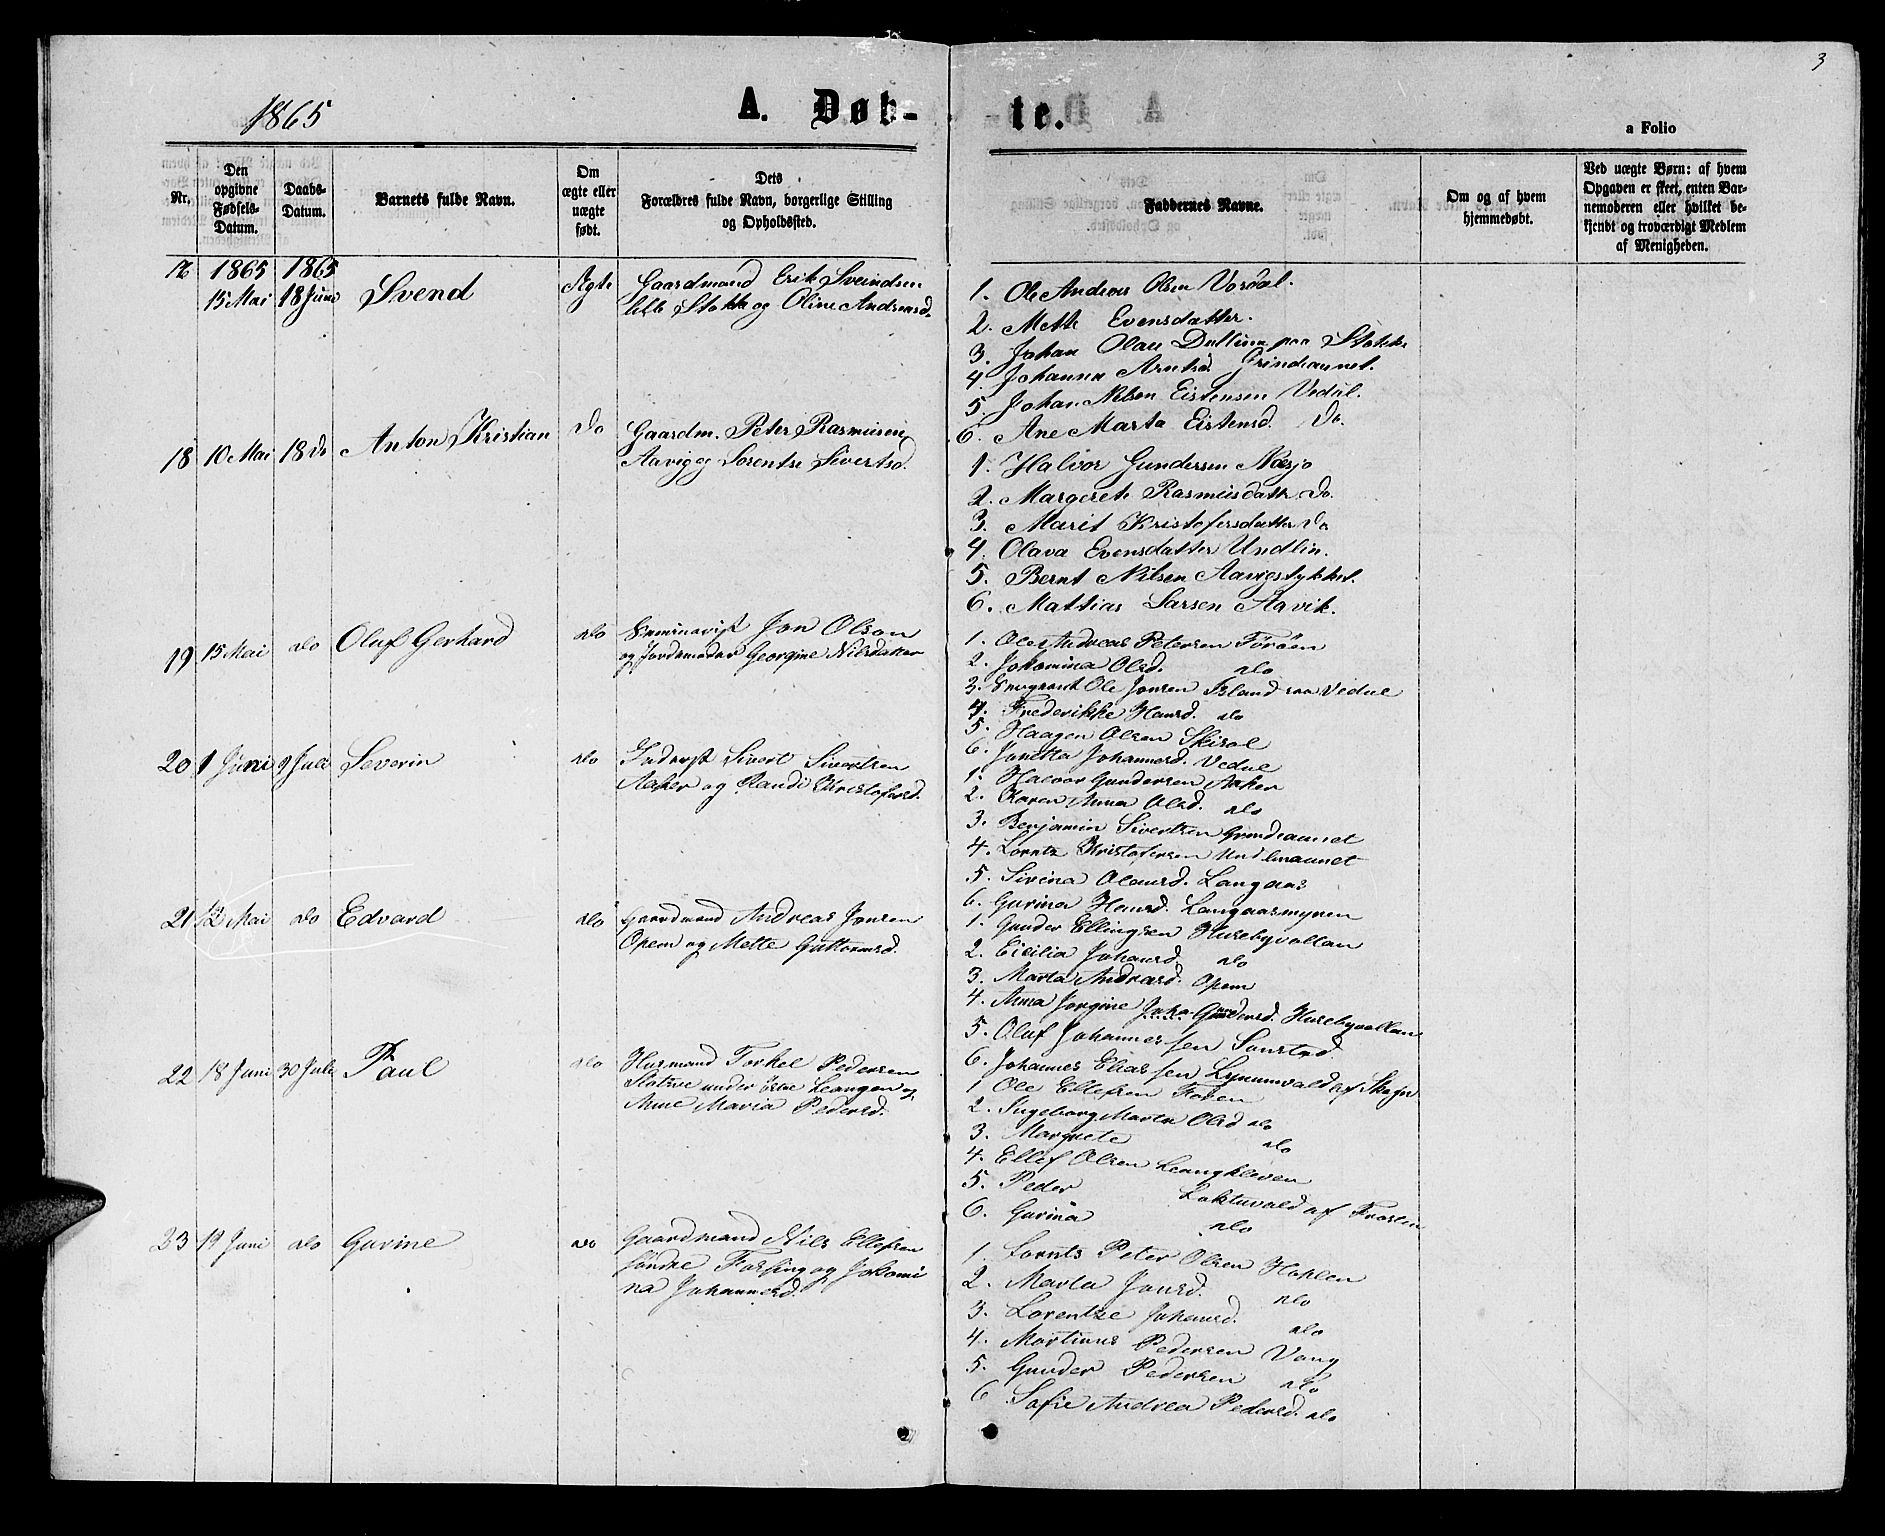 3
1865
A. Døb-
te.
a Folio
Nr.
Den opgivne Fødsels-Datum.
Daabs-Datum.
Barnets fulde Navn.
Om ægte eller uægte født.
Dets Forældres fulde Navn, borgerlige Stilling og Opholdssted.
Faddernes Navne.
Om og af hvem hjemmedøbt.
Ved uægte Børn: af hvem Opgaven er skeet, enten Barnemoderen eller hvilket bekjendt og troværdigt Medlem af Menigheden.
1865 1865
15 Mai 18 Juni Svend Ægte Gaardmand Erik Sveindsen
Stokk og Oline Andreasd.
1. Ole Andreas Olsen
2. Mette Evensdatter.
3. Johan Olau paa Stokk
4. Johanna Grindeaunet.
5. Johan Nilsen Eistensen Vedul.
6. Ane Marta Eistensd. Do.
18 10 Mai 18 Do Anton Kristian Do Gaardm. Peter Rasmusen
Aavig og Lorentse Sivertsd.
1. Halvor Gundersen Næsjo
2. Margrete Rasmusdatt. Do.
3. Marit Kristofersdatter Do
4. Olava Evensdatter Undlin.
5. Bernt Nilsen Aavigstykket.
6. Mattias Larsen Aavik.
19 15 Mai do Oluf Gerhard do Seminarist Jon Olson
og Jordemoder Georgine Nilsdatter
1. Ole Andreas Petersen Førøen
2. Jokomina Olsd. do
3. Ole Jonsen Island paa Vedul
4. Frederikke Hansd. do
5. Haagen Olsen
6. Johannesd. Vedul
20 1 Juni 9 Juli Severin do Inderst Sivert Sivertsen
Aaker og Randi Kristofersd.
1. Halvor Gundersen Aaker
2. Karen Anna Olsd. do
3. Benjamin Sivertsen Grindeaunet
4. Lornts Kristofersen Undlinaunet
5. Sirina Olausd. Langaas
6. Gurina Hansd. Langaasmyren
21 12 Mai do Edvard do Gaardmand Andreas Jonsen
Opem og Mette Guttormsd.
1. Gunder Ellingsen Husebyvollan
2. Cicilia Johansd. do
3. Marta Andreasd. Opem
4. Anna Jorgine Gundersd. Husebyvollan
5. Oluf Johannessen
6. Johannes Eliassen
22 18 Juni 30 Juli Paul do Husmand Torkel Pedersen
under Leangen og
Anne Maria Pedersd.
1 Ole Ellefsen
2. Ingeborg Marta Olsd do
3. Margrete do
4. Ellef Olsen Leangkleven
5. Peder af Frosten
6. Gurina do
23 19 Juni do Gurine do Gaardmand Nils Ellefsen
søndre og Jokomi
na Johannesd.
1. Lornts Peter Olsen
2. Marta Jonsd. do
3. Lorentze Johansd. do
4. Martinus Pedersen Vang
5. Gunder Pedersen do
6 Sofie Andrea Pedersd. do